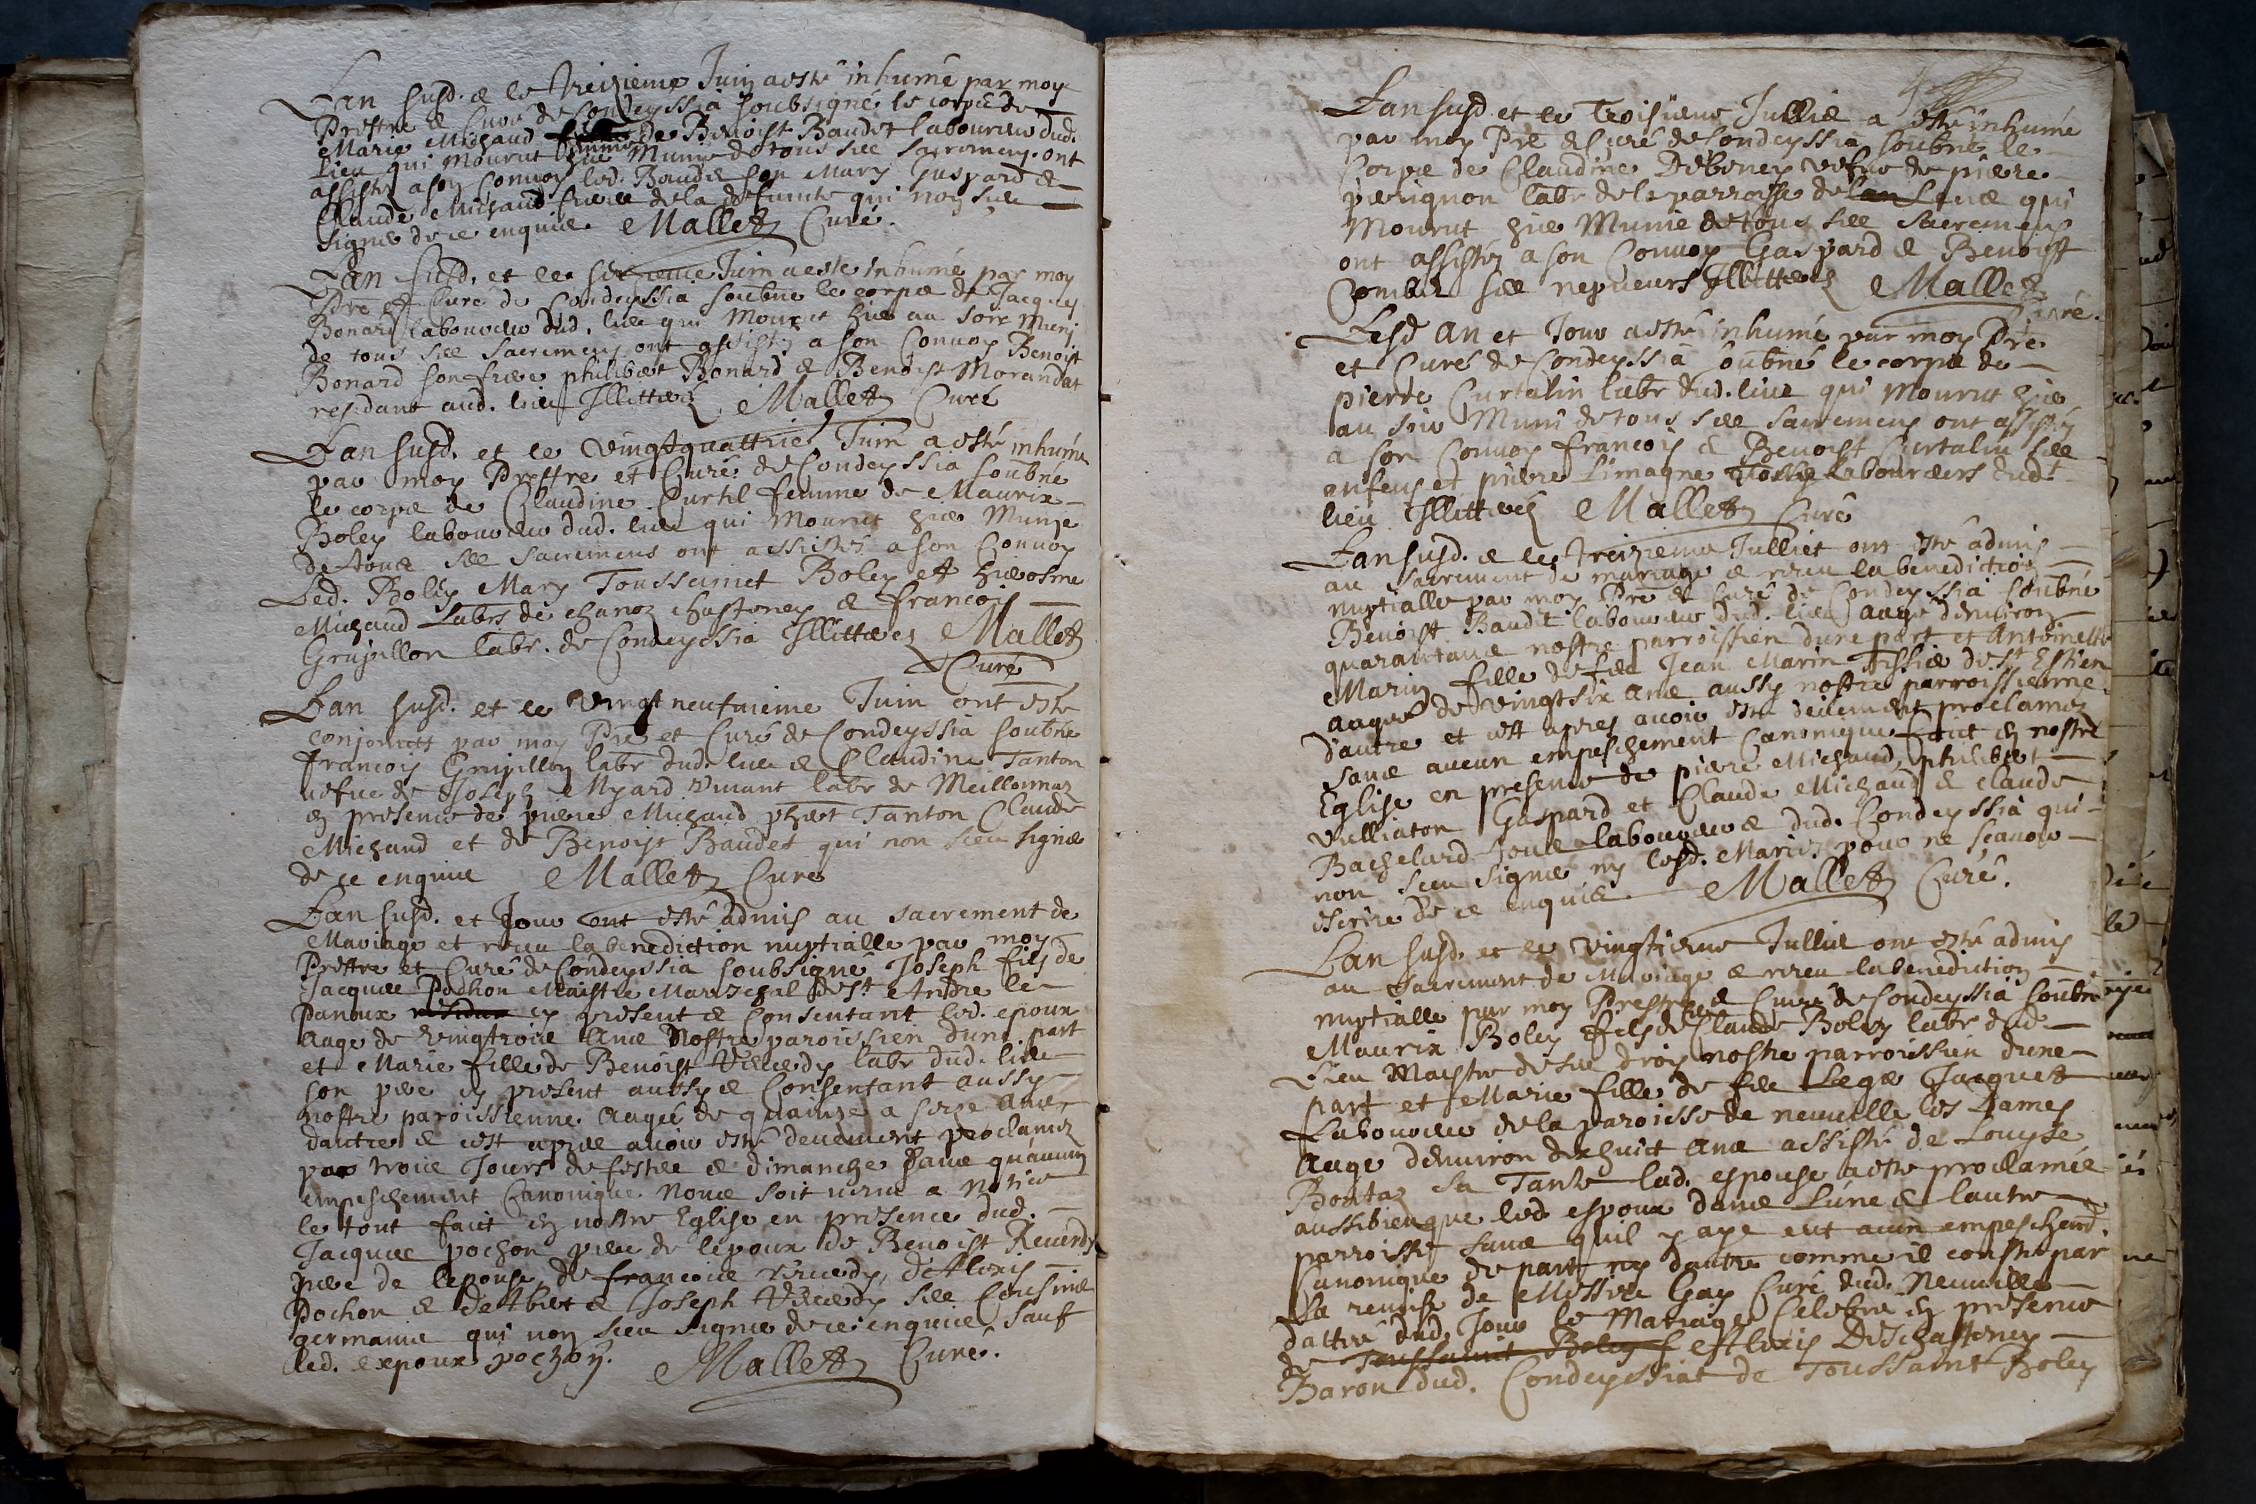 Lan susd. & le treizieme Juin a esté inhumé par moy
Prestre & Curé de Condeyssia soubsigné le corps de
Marie Michaud femme de Benoist Baudet laboureur dud.
lieu qui mourut hier Munie de tous ses sacremens ont
assisté a son Convoy led. Baudet son Mary Gaspard &
Claude Michaud freres de la defunte qui non sceu
signer de ce enquis. Mallet Curé.
Lan susd. et le seizieme Juin a este inhumé par moy
Pre et Curé de Condeyssia soubné le corps de Jacques
Bonard laboureur dud. lieu qui Mourut hier au soir Muni
de tous ses Sacremens ont assisté a son Convoy Benoist
Bonard son frere philibert Bonard & Benoist Morandat
residant aud. lieu Illitterés Mallet Curé
Lan susd. et le vingtquattrie Juin a esté inhumé
par moy Prestre et Curé de Condeyssia soubné
le corps de Claudine Curtil femme de Maurix
Boley laboureur dud. lieu qui Mourut hier Munie
de tous ses sacremens ont assistés a son Convoy
Led. Boley Mary Toussainct Boley et hierosme
Michaud Labrs de chanoz chastoney & francois
Grujillon labr. de Condeyssia Illitterés Mallet
Curé
Lan susd. et le vingt neufvieme Juin ont esté
conjoincts par moy Pre et Curé de Condeyssia soubné
francois Grujillon labr dud. lieu & Claudine Tanton
vefve de Joseph Myard vivant labr de Meillonnaz
en presence de pierre Michaud phbert Tanton Claude
Michaud et de Benoist Baudet qui non sceu signer
de ce enquis Mallet Curé
Lan susd. et Jour ont esté admis au sacrement de
Mariage et receu la benediction nuptialle par moy
Prestre et Curé de Condeyssia soubsigné Joseph fils de
Jacques Pochon Maistre Mareschal de st. Andre le
Panoux residan cy present & Consentant led. epoux
Aage de vingtrois ans Nostre paroissien dune part
et Marie fille de Benoist Reverdy labr dud. lieu
son pere cy present aussy & Consentant aussy
nostre paroissienne Aagée de quainze a seize ans
dautre & cest apres avoir esté deuement proclamez
par trois Jours de festes & dimanche sans quaucun
empeschement Canonique Nous soit venu a Notice
le tout faict en nostre Eglise en presence dud.
Jacques pochon pere de lepoux de Benoist Reverdy
pere de lepouse, de francois reverdy, dAlexis
Pochon & de Abert & Joseph Reverdy ses Cousins
germains qui non sceu signer de ce enquis sauf
led. expoux pochon. Mallet Curé.
Lan susd et le Troisieme Jullié a esté inhumé
par moy Pre & Curé de Condeyssia soubné le
Corps de Claudine Debeney vefve de pierre
perignon labr de la parroisse de lan Lene qui
Mourut hier Munie de tous ses Sacremens
ont assistés a son Convoy Gaspard & Benoist
Combet ses nepveurs Illitterés Mallet
Curé.
Lesd an et Jour a esté inhumé par moy Pre
et Curé de Condeyssia soubné le corps de
pierre Curtalin labr dud. lieu qui mourut hier
au soir Muni de tous ses sacremens ont assistés
a son Convoy francois & Benoist Curtalin ses
enfens et pierre Limagne laboureurs dudt
lieu Illitterés Mallet Curé
Lan susd. & le treizieme Julliet ont esté admis
au Sacrement de mariage & receu la benediction
nuptialle par moy Pre & Curé de Condeyssia soubné
Benoist Baudet laboureur dud. lieu aagé denviron
quarantans nostre parroissien dune part et Antoinette
Marin fille de feu Jean Marin Tissier de st Estien
aagée de vingtsix ans aussy nostre parroissienne
dautre et cest apres avoir esté deuement proclamez
sans aucun empeschement Canonique faict en nostre
Eglise en presence de pierre Michaud, philibert
vulliaton Gaspard et Claude Michaud & Claude
Bachelard tous laboureurs dud. Condeyssia qui
non sceu signer ny lesd. Mariés pour ne scavoir
escrire de ce enquis Mallet Curé.
Lan susd. et le vingtieme Julliet ont esté admis
au Sacrement de Mariage & receu la benediction
nuptialle par moy Prestre & Curé de Condeyssia soubné
Maurix Boley fils de Claude Boley labr dud.
Lieu Maistre de ses drois nostre parroissien dune
part et Marie fille de feu Legé Jacquet
Laboureur de la paroisse de neuville les Dames
Aagé denviron dixhuict ans assisté de Louyse
Bontaz sa Tante lad. espouse a esté proclamée
aussibien que led espoux dans Lune & lautre
parroisse sans quil y aye eut aucun empeschemt.
Canonique de part ny dautre comme il conste par
La remise de Messire Gay Curé dud. Neuville
dattée dud. Jour le Mariage Celebré en presence
de Toussainct Boley f Alexis Dechastoney
Baron dud. Condeyssiat de Toussaint Boley